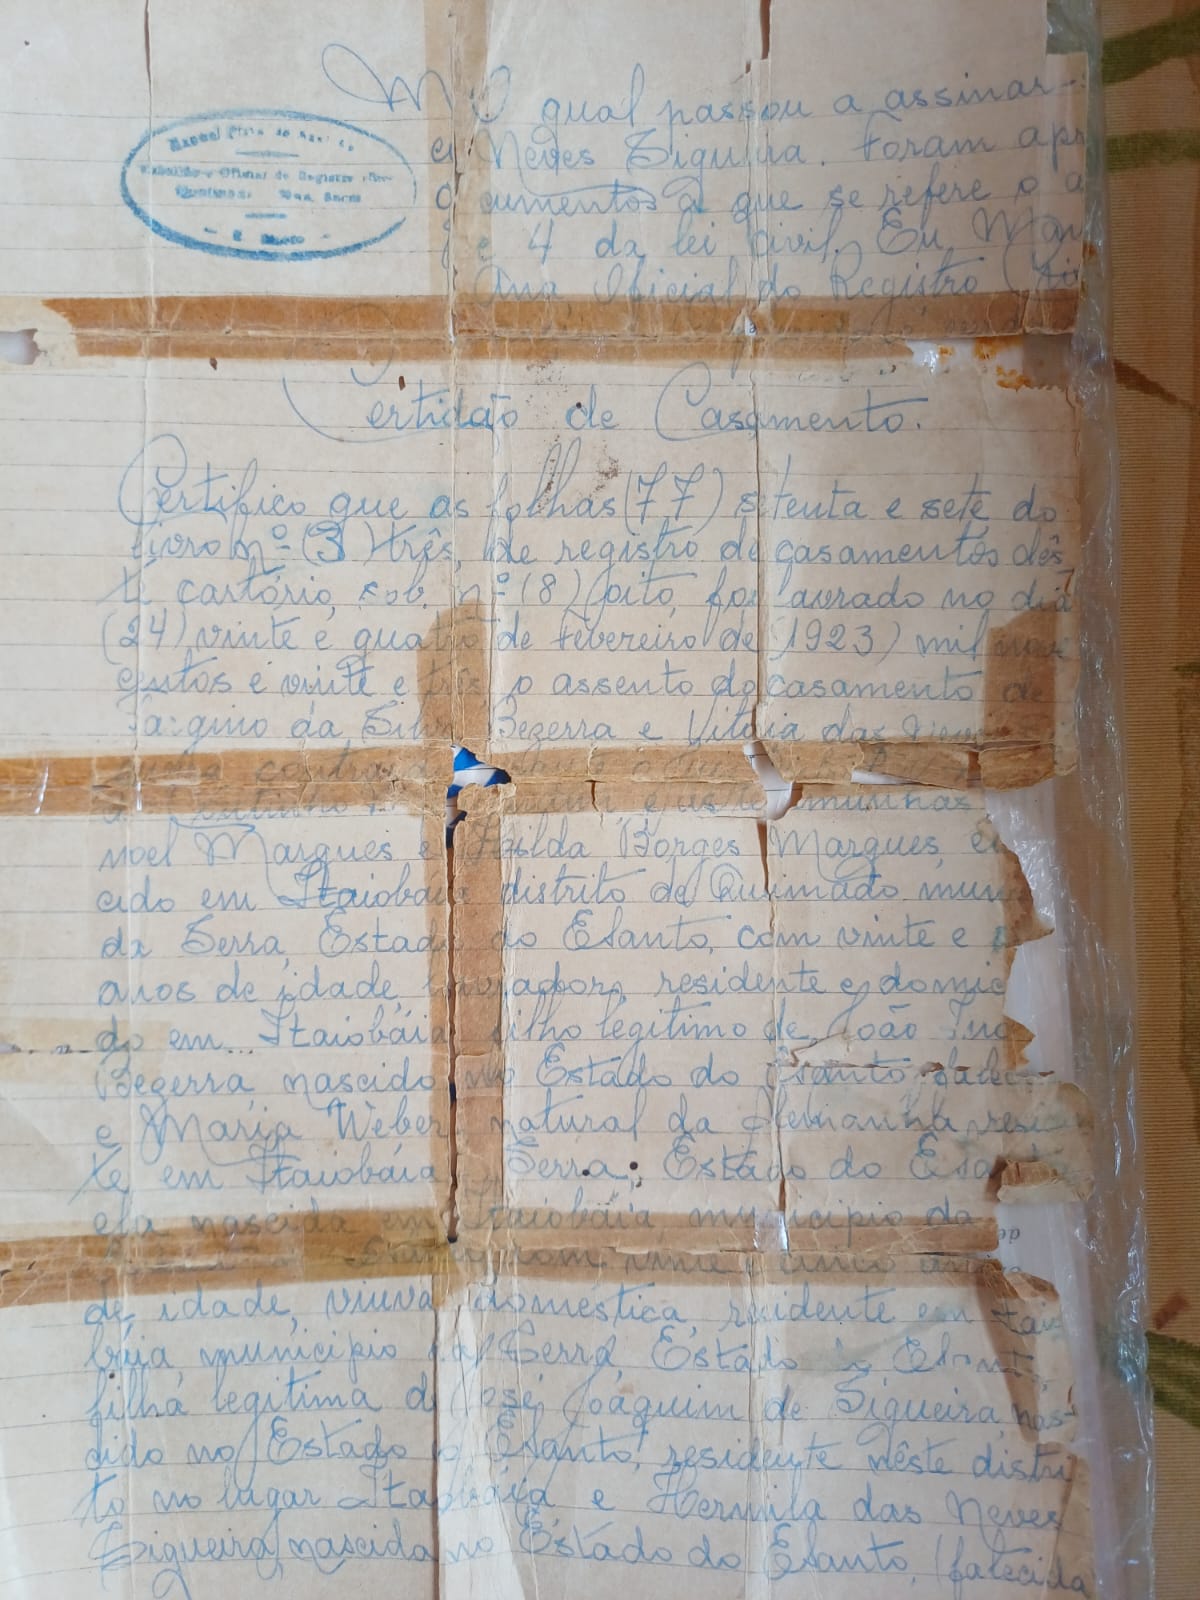 O qual passou a assinar-
Neves Siqueira. Foram apr
cumentos a que se refere o a
e 4 da lei civil. Eu, Man
Official do Registro
Manoel
e Oficial de Registro
Certidão de Casamento.
Certifico que as folhas (77) setenta e sete do
livro nº (3) três, de registro de casamentos dês
te cartório, sob. nº (8) oito, foi lavrado no dia
(24) vinte e quatro de Fevereiro de (1923) mil nove
centos e vinte e três o assento do casamento de
Targino da Silva Bezerra e Vitoia das Neves
munhas
noel Marques e Marques,
cido em Itaiobáia distrito de Queimado mun
da Serra, Estado do Esanto, com vinte e
anos de idade, lavrador, residente e domic
do em Itaiobáia filho legitimo de João
Bezerra, nascido no Estado do Esanto, falec
e Maria Weber, natural da Alemanha, resid
te em Itaiobáia, Serra, Estado do Esanto
ela nascida em Itaiobáia, municipio da
com vinte e cinco anos
de idade, viuva, doméstica, residente em Itaio
báia, municipio da Serra, Estado do Esanto,
filha legitima de José Joaquim de Siqueira, nas-
cido no Estado do Esanto, residente nêste distri
to no lugar Itaiobáia e Hermila das Neves
Siqueira, nascida no Estado do Esanto, (falecida